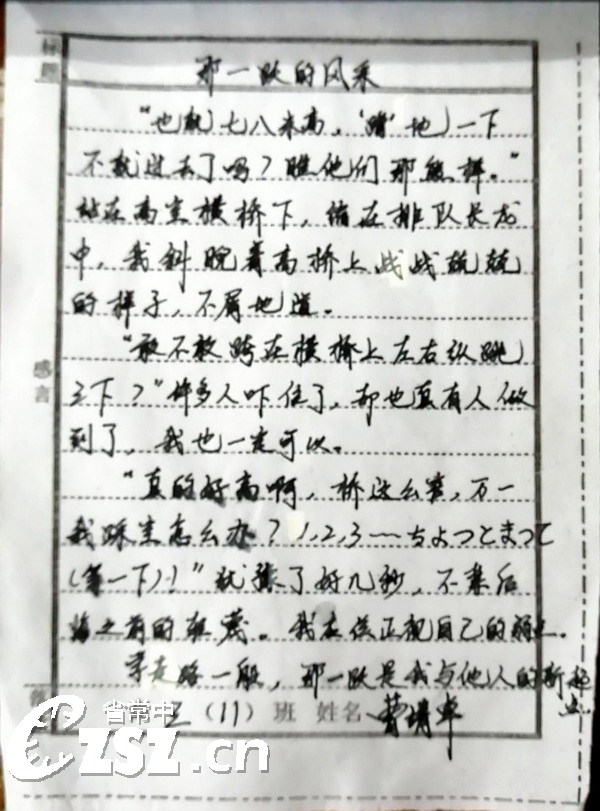 标题
那一跃的风采
“也就七八米高，‘蹭’地一下
不就过去了吗？瞧他们那熊样。”
站在高空横桥下，缩在排队长龙
中，我斜睨着高桥上战战兢兢
的样子，不屑地道。
“敢不敢跨在横桥上左右纵跳
三下？”许多人吓住了，却也真有人做
到了，我也一定可以。
感言
“真的好高啊，桥这么窄，万一
我踩空怎么办？1,2,3——ちょっとまって
（等一下）！”犹豫了好几秒，不禁后
悔之前的轻蔑。我在侧正视自己的
走路一般，那一跃是我与他人的新起
点.
（11）班 姓名
省常中
CZSZ.cn